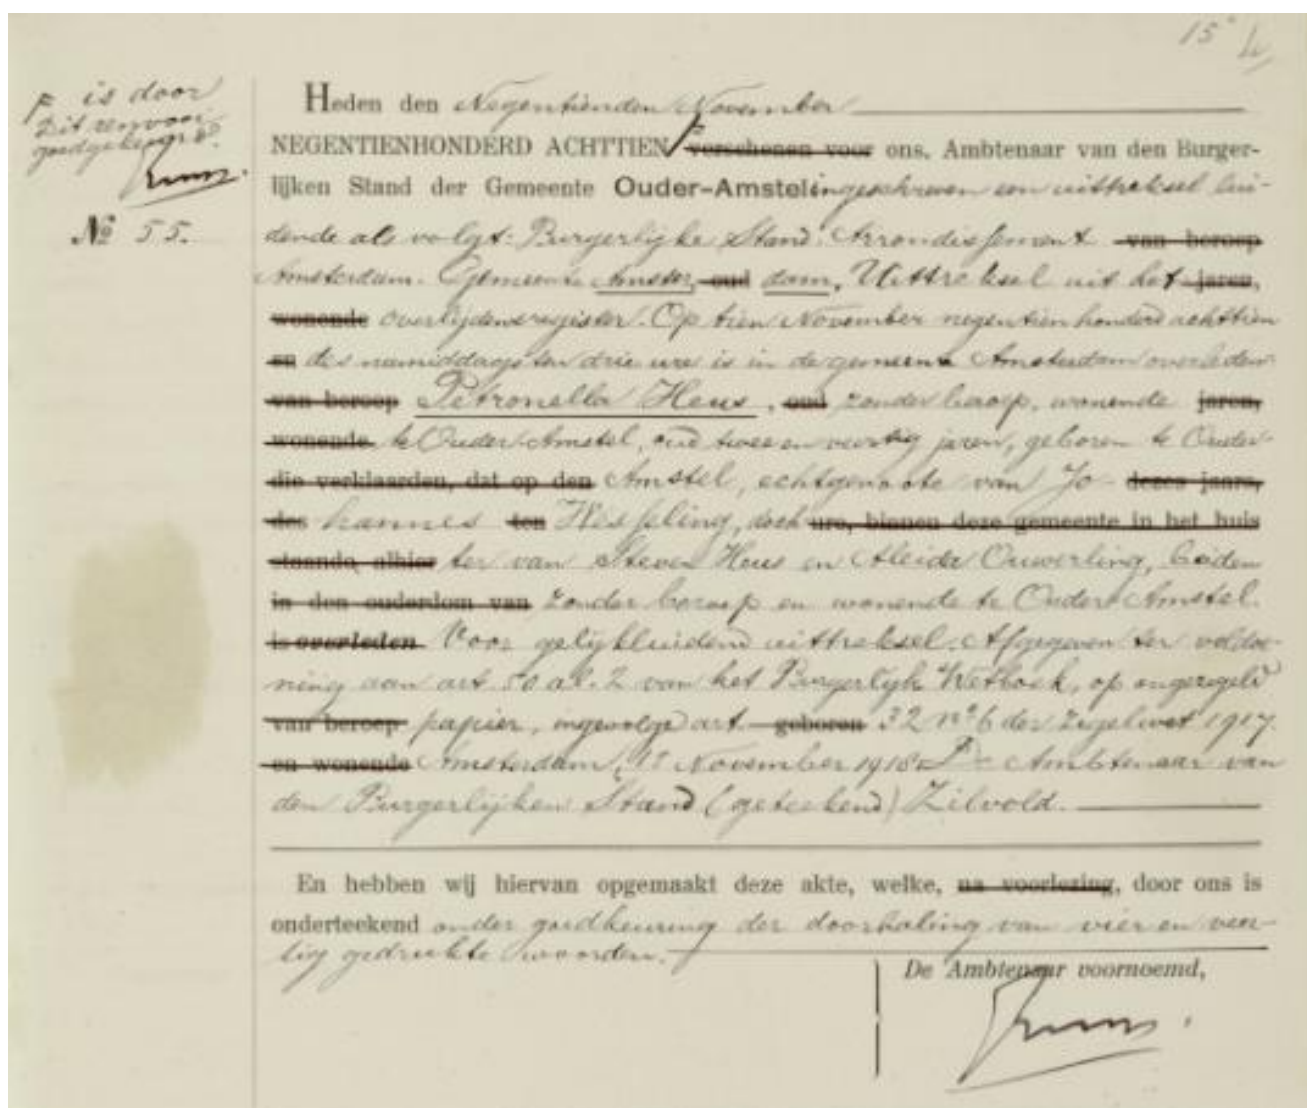 15
is door
dit renvooi
goedgekeurd.
No 55.
Heden den Negentienden November
NEGENTIENHONDERD ACHTTIEN verschenen voor ons, Ambtenaar van den Burger-
lijken Stand der Gemeente Ouder-Amstel ingeschreven een uittreksel lui-
dende als volgt: Burgerlijke Stand. Arrondissement van beroep
Amsterdam. Gemeente Amster oud dam. Uittreksel uit het jaren,
wonende overlijdensregister. Op tien November negentienhonderd achttien
en des namiddags ten drie ure is in de gemeente Amsterdam overleden
van beroep Petronella Heus, oud zonder beroep, wonende jaren,
wonende te Ouder-Amstel, oud twee en veertig jaren, geboren te Ouder-
die verklaarden, dat op den Amstel, echtgenoote van Jo- dezes jaars,
des hannes ten Wesseling, doch ure, binnen deze gemeente in het huis
staande, alhier ter van Steven Heus en Aleida Ouwerling, beiden
in den ouderdom van zonder beroep en wonende te Ouder-Amstel.
is overleden Voor gelijkluidend uittreksel. Afgegeven ter voldoe-
ning aan art. 50 al. 2 van het Burgerlijk Wetboek, op ongezegeld
van beroep papier, ingevolge art. geboren 32 no 6 der Zegelwet 1917.
en wonende Amsterdam, 18 November 1918. De Ambtenaar van
den Burgerlijken Stand (geteekend) Zilvold.
En hebben wij hiervan opgemaakt deze akte, welke, na voorlezing, door ons is
onderteekend onder goedkeuring der doorhaling van vier en veer-
tig gedrukte woorden.
De Ambtenaar voornoemd,